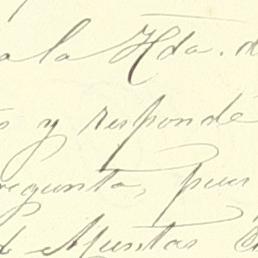 a la Hda. d
s y responde
regunta, pues
de Muntas